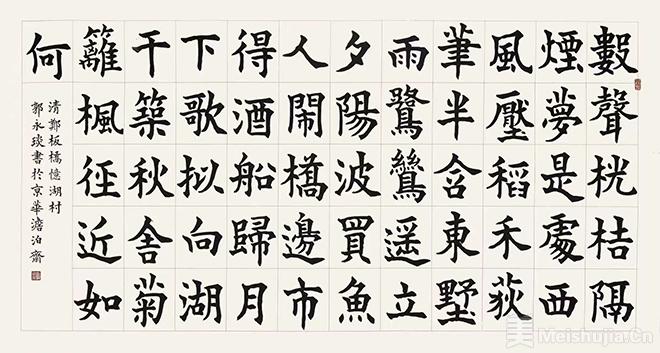 數聲桄桔隔
煙夢是處西
風壓稻禾荻
筆半含東墅
雨鷺鷥遥立
夕陽波買魚
人鬧橋邊市
得酒船歸月
下歌拟向湖
千築秋舍菊
籬楓徑近如
何
清鄭板橋憶湖村
郭永琰書於京華澹泊齋
美 Meishujia.Cn